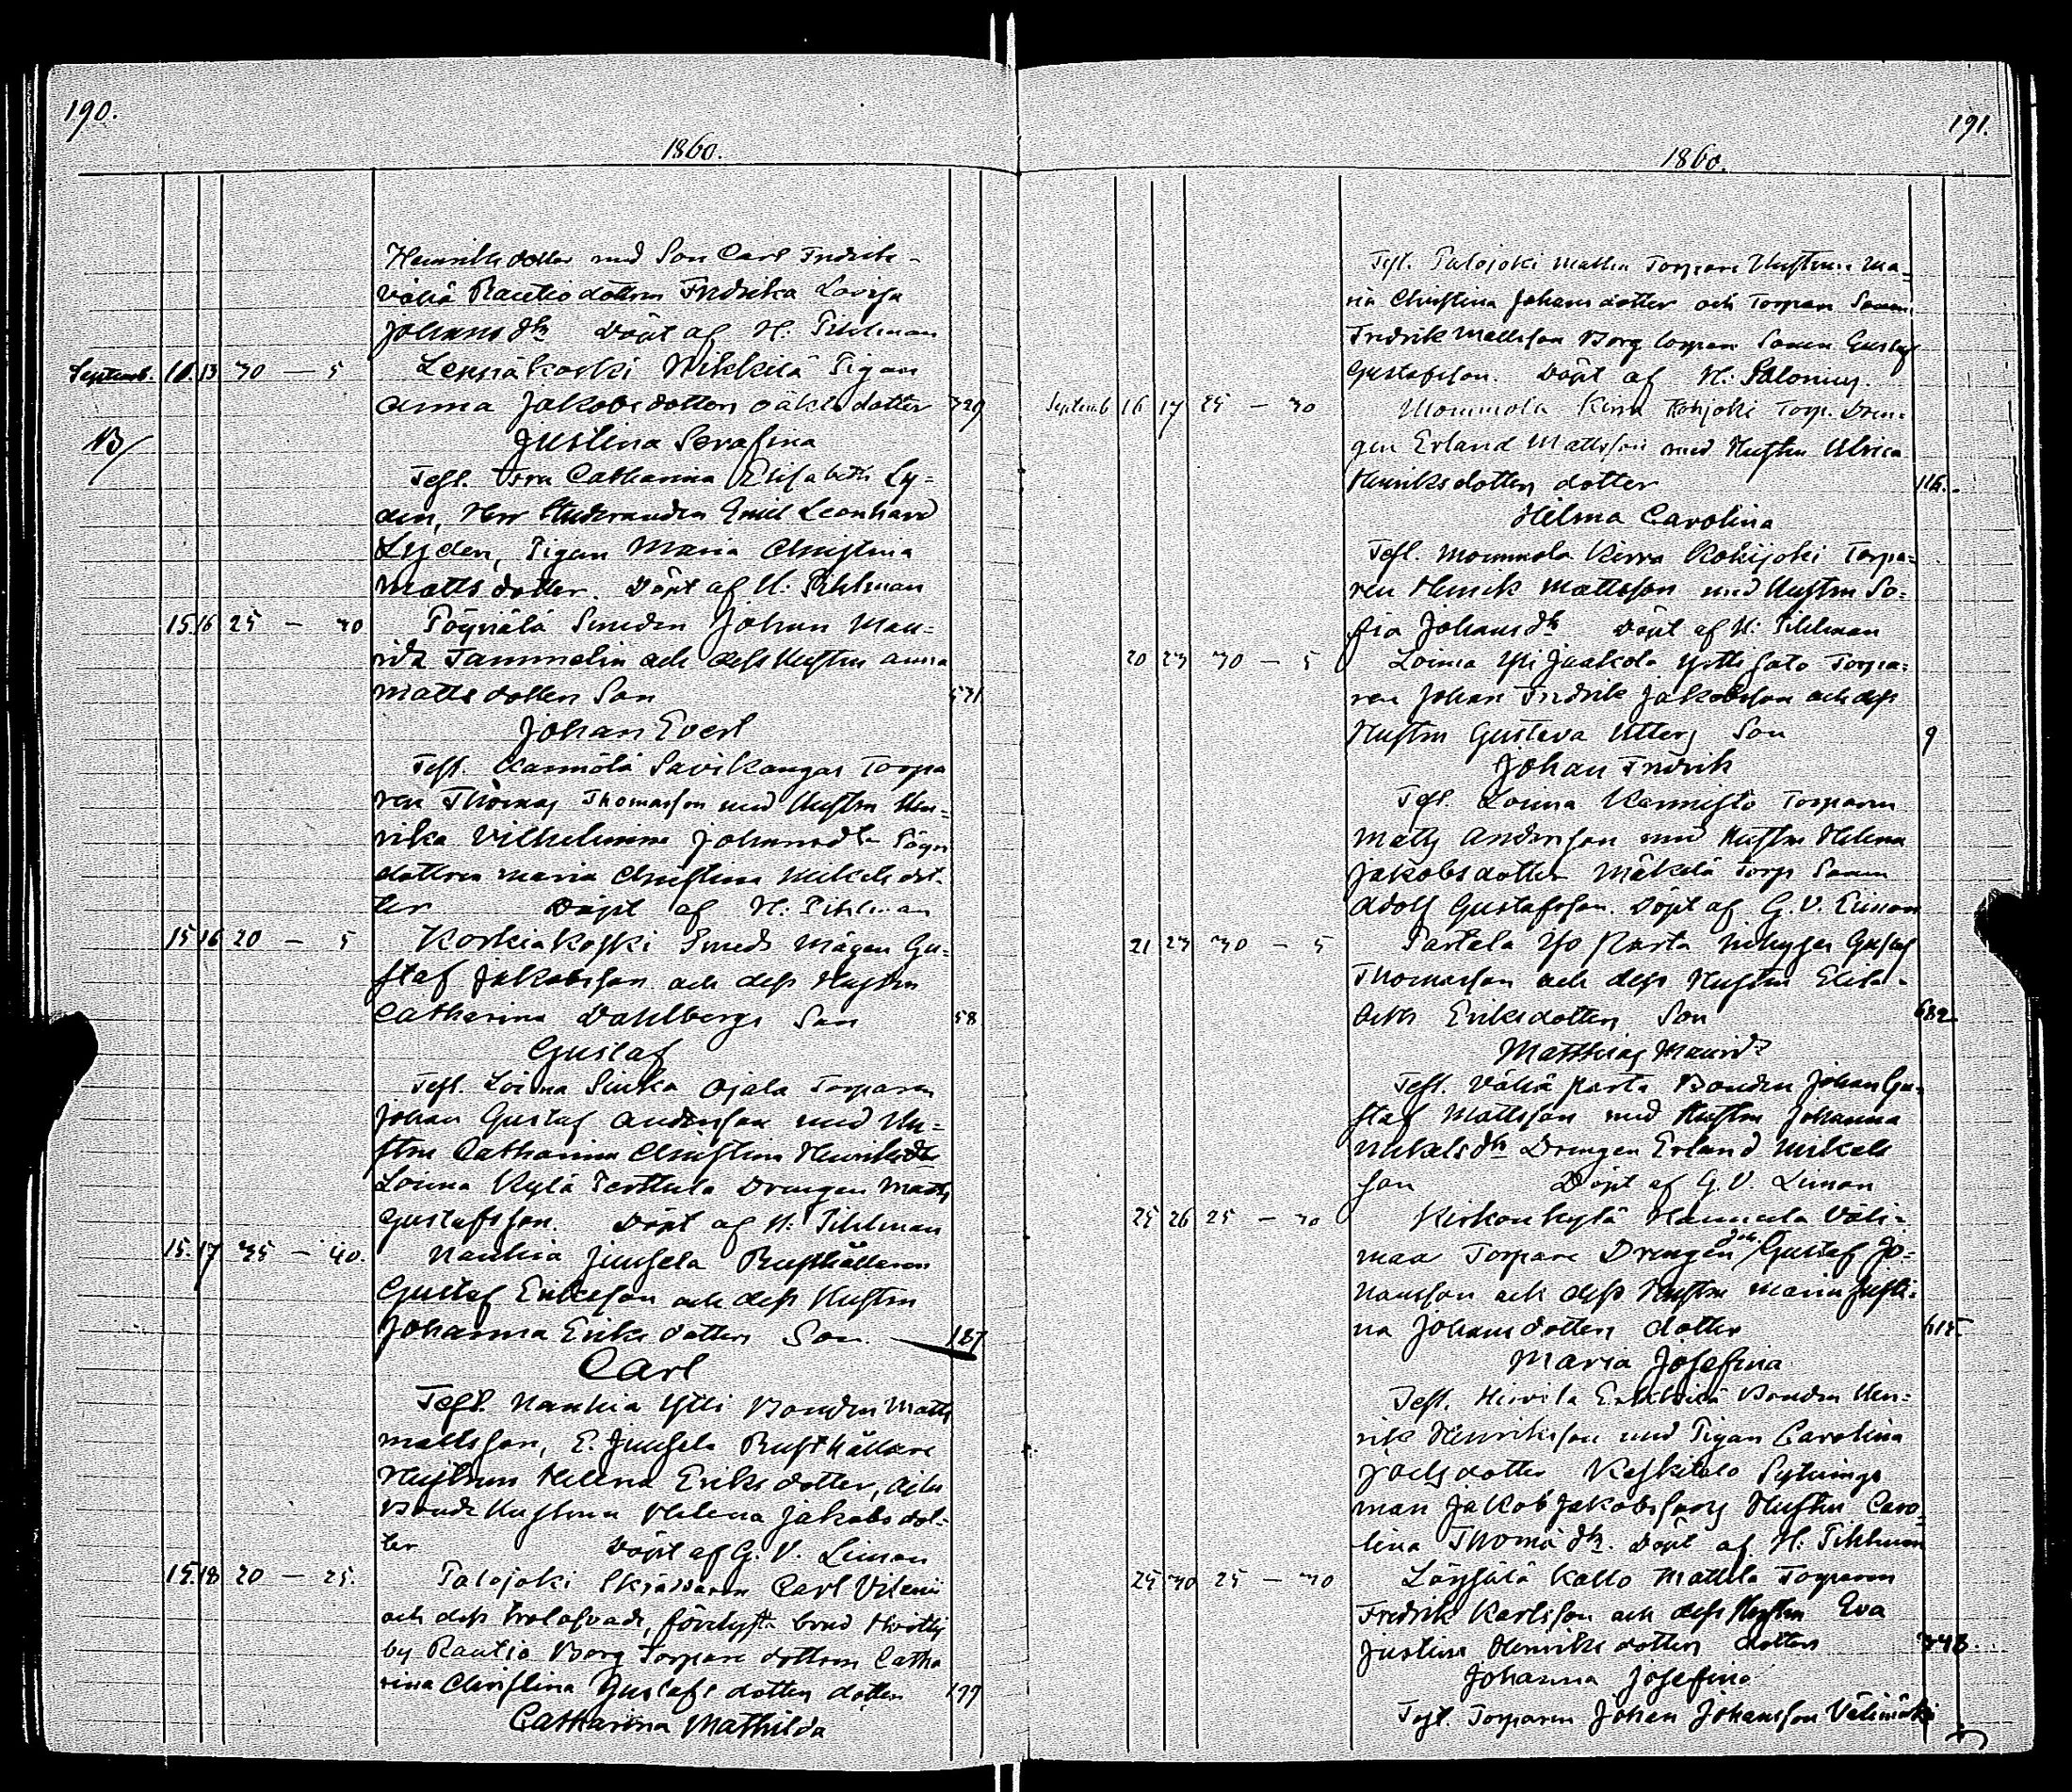 190.
1860.
Henriksdotter med Son Carl Fredrik
Vähä Rautio dottren Fredrika Lovisa
Johansdr Döpt af H: Pihlman
Septemb. 10. 13 30 — 5 Leppäkoski Mikkilä Pigan
Anna Jakobsdotters oäkta dotter 329
B/ Justina Serafina
Test. Fru Catharina Elisabeth Ly=
den, Herr Studeranden Emil Leonhard
Lyden, Pigan Maria Christina
Mattsdotter. Döpt af H: Pihlman
15 16 25 — 30 Pöyriälä Smeden Johan Mau=
ritz Tammelin och dess Hustru Anna
Mattsdotters Son 531
Johan Evert
Test. Savikangas Torpa
ren Thomas Thomasson med Hustru Hen=
rika Vilhelmina Johansdr
dottren Maria Christina Mikelsdot=
ter Döpt af H: Pihlman
15 16 20 — 5 Koskiakoski Smeds Mågen Gu=
staf Jakobsson och dess Hustru
Catharina Dahlbergs Son 58
Gustaf
Test. Loima Sinka Ojala Torparen
Johan Gustaf Andersson med Hu=
stru Catharina Christina Henriksdr
Loima Kylä Perttula Drengen Matts
Gustafsson. Döpt af H: Pihlman
15. 17 35 — 40. Nauhia Juusela Rusthållaren
Gustaf Eriksson och dess Hustru
Johanna Eriksdotters Son 187
Carl
Test. Nauhia Ylli Bonden Matts
Mattsson, E. Juusela Rusthållare
Hustrun Helena Eriksdotter,
Bonde Hustrun Helena Jakobsdot=
ter Döpt af G. V. Liman
15. 18 20 — 25. Palojoki Skräddaren Carl
och dess trolofvade, förelysta brud
by Rautio Borg Torpare dottren Catha
rina Christina Gustafsdotters dotter 199
Catharina Mathilda
191.
1860.
Test. Palojoki Matten Torpare Hustrun Ma=
ria Christina Johansdotter och Torpare Sonen
Fredrik Mattsson Borg torpare Sonen Gustaf
Gustafsson. Döpt af H: Salonius.
Septemb 16 17 25 — 30 Mommola Kirra Kohijoki Torp. Dren=
gen Erland Mattsson med Hustru Ulrica
Henriksdotters dotter 116.
Hilma Carolina
Test. Mommola Kirra Kohijoki Torpa=
ren Henrik Mattsson med Hustru So=
fia Johansdr Döpt af H: Pihlman
20 23 30 — 5 Loima Yli Jaakola Torpa=
ren Johan Fredrik Jakobsson och dess
Hustru Gustava Utters Son 9
Johan Fredrik
Test. Loima Kannisto Torparen
Matts Andersson med Hustru Helena
Jakobsdotter Mäkelä Torp. Sonen
Adolf Gustafsson. Döpt af G. V. Liman
21 23 30 — 5 Partala Yso Parta Inhyses Gustaf
Thomasson och dess Hustru Elisa=
beth Eriksdotters Son 682
Matthias Mauritz
Test. Vähä parta Bonden Johan Gu=
staf Mattsson med Hustru Johanna
Mikelsdr Drengen Erland Mikels
son Döpt af G. V. Liman
25 26 25 — 30 Kirkonkylä Hannula Väli=
maa Torpare Drengen Joh. Gustaf Jo=
hansson och dess Hustru Maria Justi=
na Johansdotters dotter 615.
Maria Josefina
Test. Hirvilä Bonden Hen=
rik Henriksson med Pigan Carolina
Joelsdotter Keskitalo Sytnings
man Jakob Jakobssons Hustru Caro=
lina Thomädr. Döpt af H: Pihlman
25 30 25 — 30 Löysälä Kallo Mattila Torparen
Fredrik Karlsson och dess Hustru Eva
Justina Henriksdotters dotter 348.
Johanna Josefina
Test. Torparen Johan Johansson Välimäki